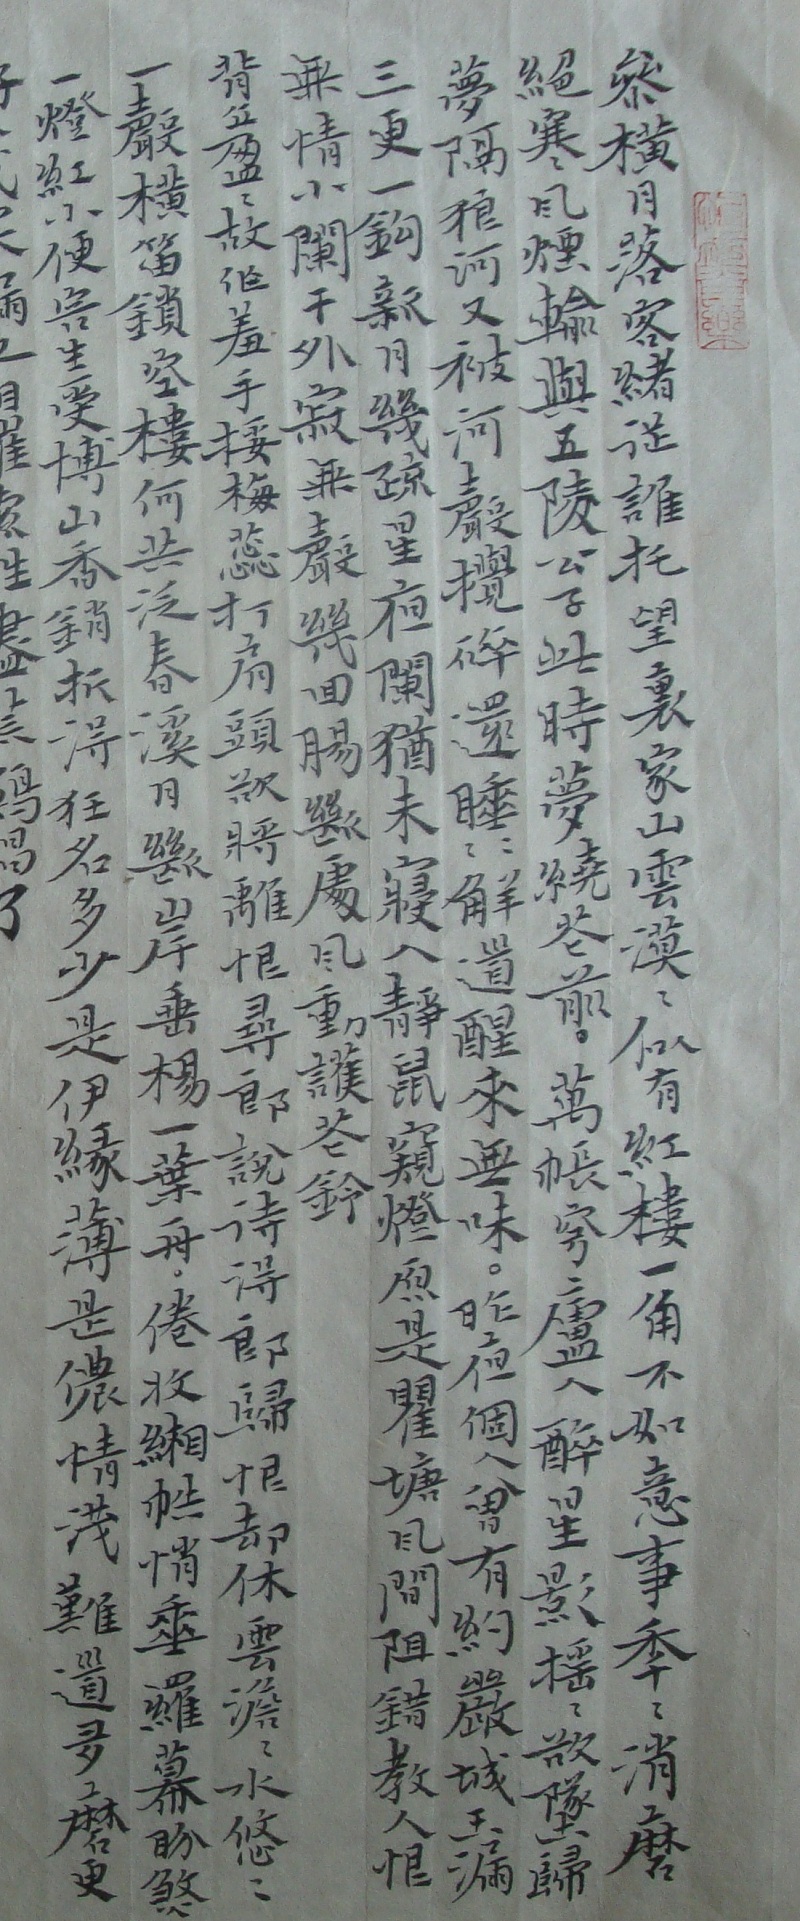 參橫月落客緒從誰托望裏家山雲漠〻似有紅樓一角不如意事年〻消磨
絕塞〻風煙輸與五陵公子此時夢繞花前。萬帳穹廬人醉星影搖〻欲墜歸
夢隔狼河又被河聲攪碎還睡〻解道醒來無味。昨夜個人曾有約嚴城玉漏
三更一鉤新月幾疏星夜闌猶未寢人靜鼠窺燈原是瞿塘風間阻錯教人恨
無情小闌干外寂無聲幾回腸斷處風動護花鈴
背立盈〻故作羞手挼梅蕊打肩頭欲將離恨尋郎說待得郎歸恨却休雲澹〻水悠〻
一聲橫笛鎖空樓何共泛春溪月斷岸垂楊一葉舟。倦收緗帙悄垂羅幕盼煞
一燈紅小便容生受博山香銷折得狂名多少是伊緣薄是儂情淺難道多磨更
好